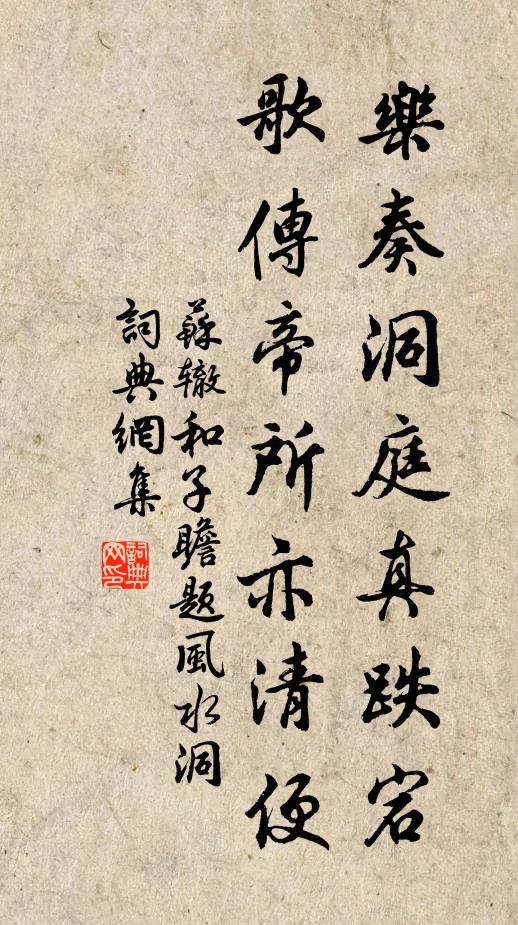 樂奏洞庭真跌宕
歌傳帝所亦清便
蘇辙和子瞻题風水洞
詞典網集
詞典網印